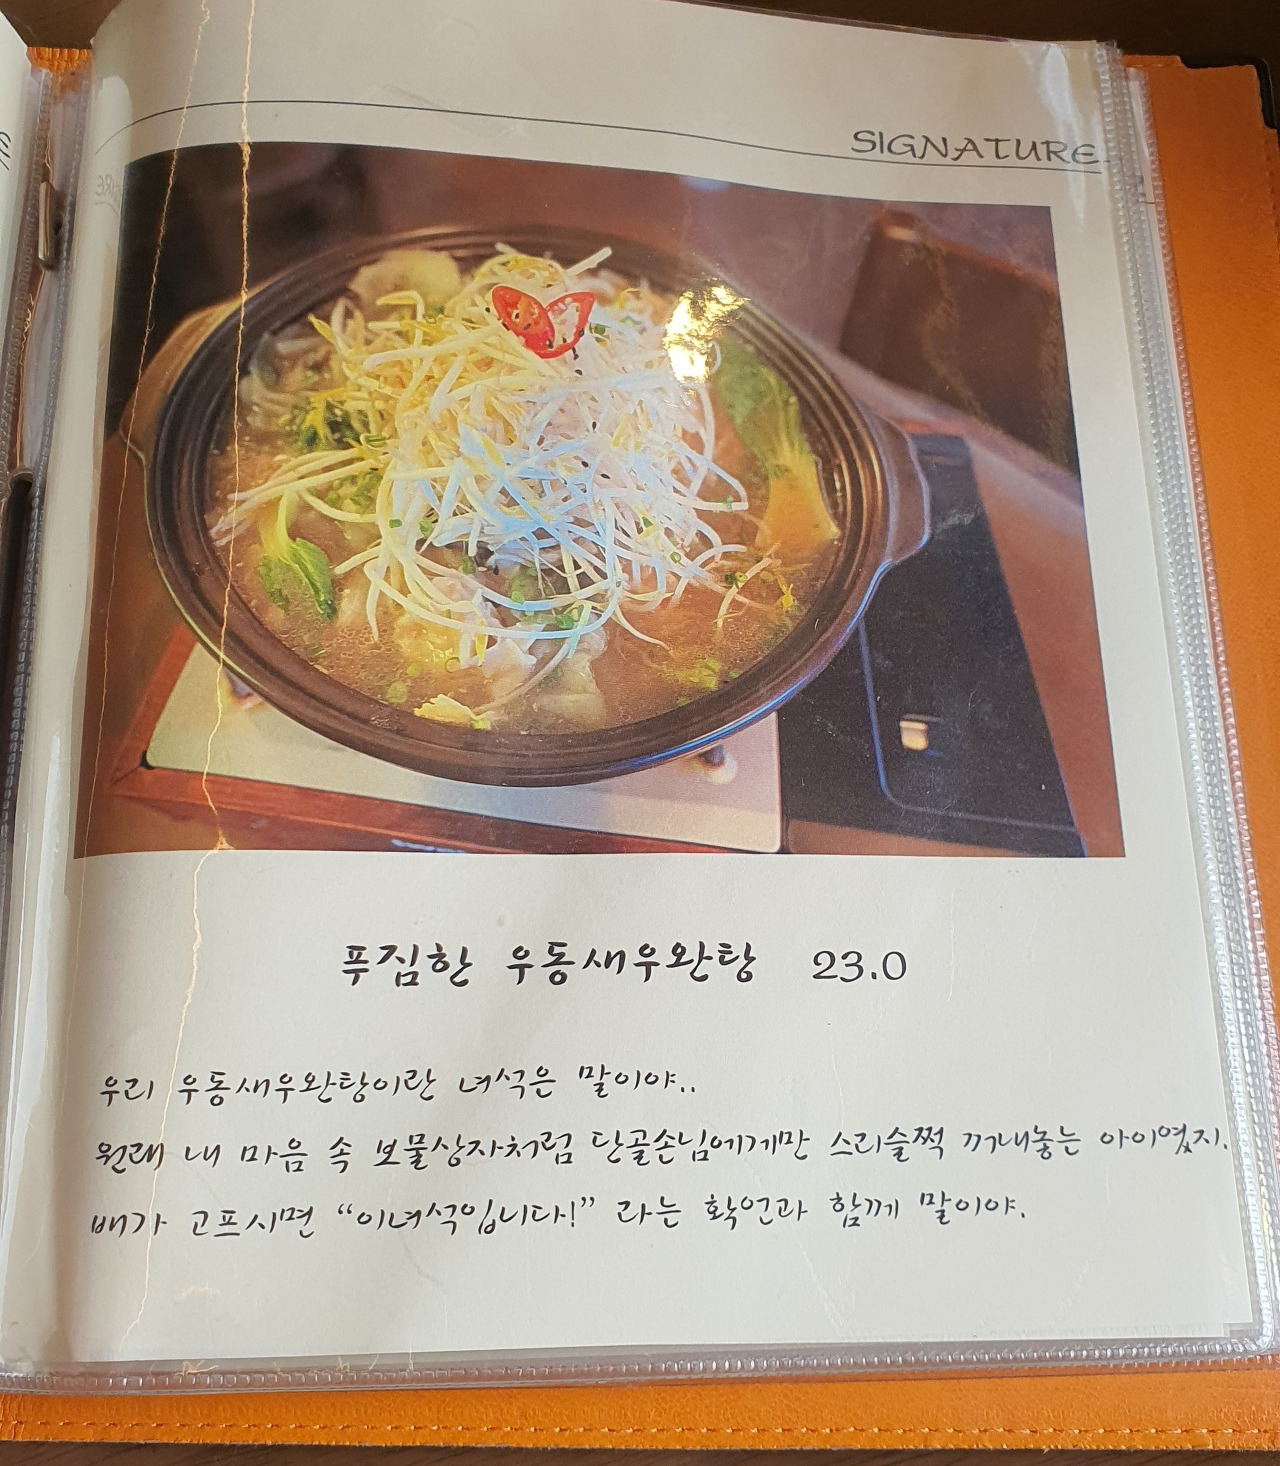 SIGNATURE
푸짐한 우동새우완탕 23.0
우리 우동새우완탕이란 녀석은 말이야..
원래 내 마음 속 보물상자처럼 단골손님에게만 스리슬쩍 꺼내놓는 아이였지.
배가 고프시면 “이녀석입니다!” 라는 확언과 함께 말이야.